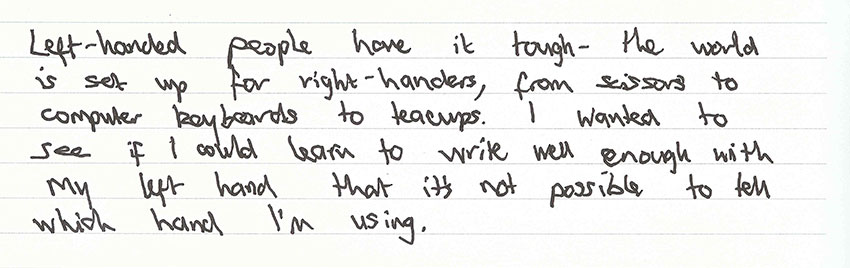 Left-handed people have it tough- the world
is set up for right-handers, from scissors to
computer keyboards to teacups. I wanted to
see if I could learn to write well enough with
my left hand that it's not possible to tell
which hand I'm using.